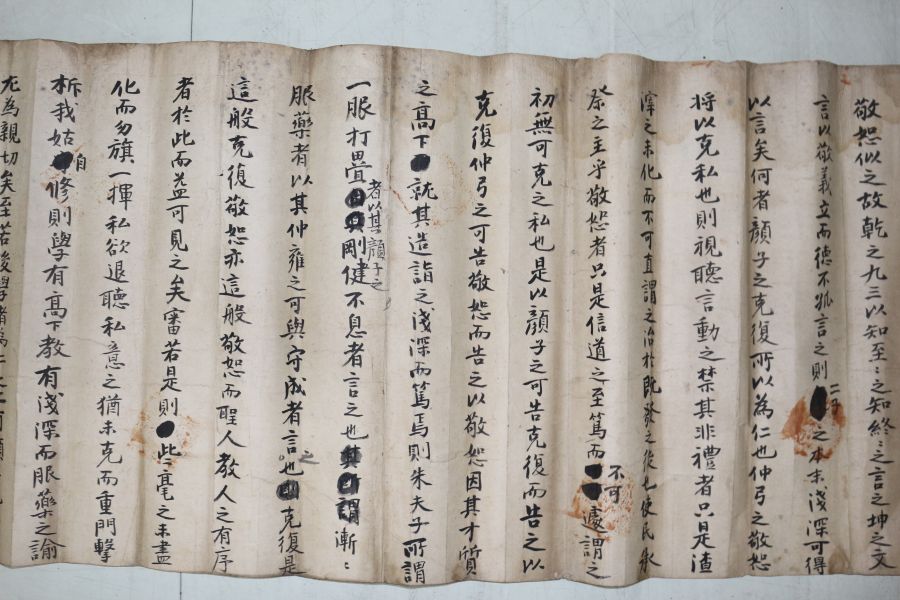 敬恕似之故乾之九三以知至〻之知終〻之言之坤之文
言以敬義立而德不孤言之則二子之本末淺深可得
以言矣何者顏子之克復所以為仁也仲弓之敬恕
將以克私也則視聽言動之禁其非禮者只是渣
滓之未化而不可直謂之治於既發之後也使民承
祭之主乎敬恕者只是信道之至篤而不可遽謂之
初無可克之私也是以顏子之可告克復而告之以
克復仲弓之可告敬恕而告之以敬恕因其才質
之高下就其造詣之淺深而篤焉則朱夫子所謂
一服打疊者以其顏子之剛健不息者言之也漸〻
服藥者以其仲雍之可與守成者言之也克復是
這般克復敬恕亦這般敬恕而聖人教人之有序
者於此而益可見之矣審若是則此一毫之未盡
化而勿旗一揮私欲退聽私意之猶未克而重門擊
柝我姑自修則學有高下教有淺深而服藥之諭
尤為親切矣至若後學者為二